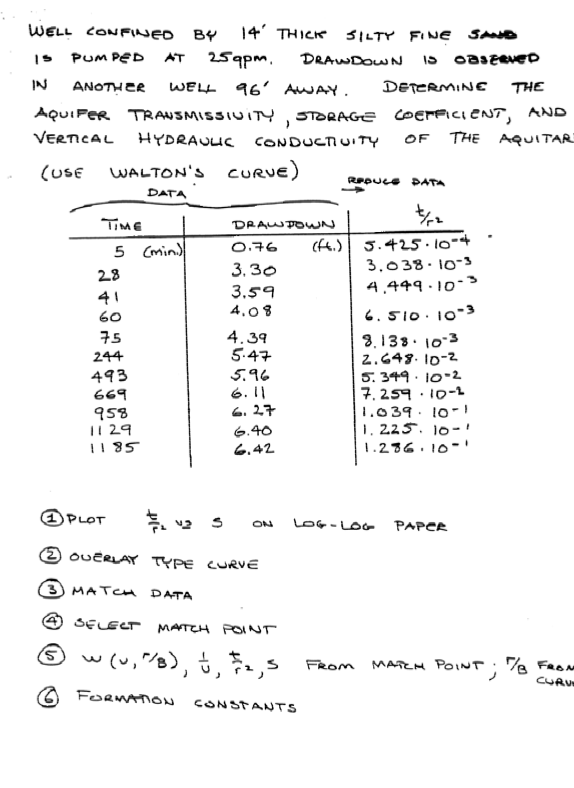 WELL CONFINED BY 14' THICK SILTY FINE SAND
IS PUMPED AT 25gpm. DRAWDOWN IS OBSERVED
IN ANOTHER WELL 96' AWAY. DETERMINE THE
AQUIFER TRANSMISSIVITY, STORAGE COEFFICIENT, AND
VERTICAL HYDRAULIC CONDUCTIVITY OF THE AQUITAR
(USE WALTON'S CURVE)
DATA REDUCE DATA
TIME DRAWDOWN t/r2
5 (min) 0.76 (ft.) 5.425·10-4
28 3.30 3.038·10-3
41 3.59 4.449·10-3
60 4.08 6.510·10-3
75 4.39 8.138·10-3
244 5.47 2.648·10-2
493 5.96 5.349·10-2
669 6.11 7.259·10-2
958 6.27 1.039·10-1
1129 6.40 1.225·10-1
1185 6.42 1.286·10-1
① PLOT t/r2 vs S ON LOG-LOG PAPER
② OVERLAY TYPE CURVE
③ MATCH DATA
④ SELECT MATCH POINT
⑤ W(u, r/B), 1/u, t/r2, S FROM MATCH POINT; r/B FROM CURV
⑥ FORMATION CONSTANTS